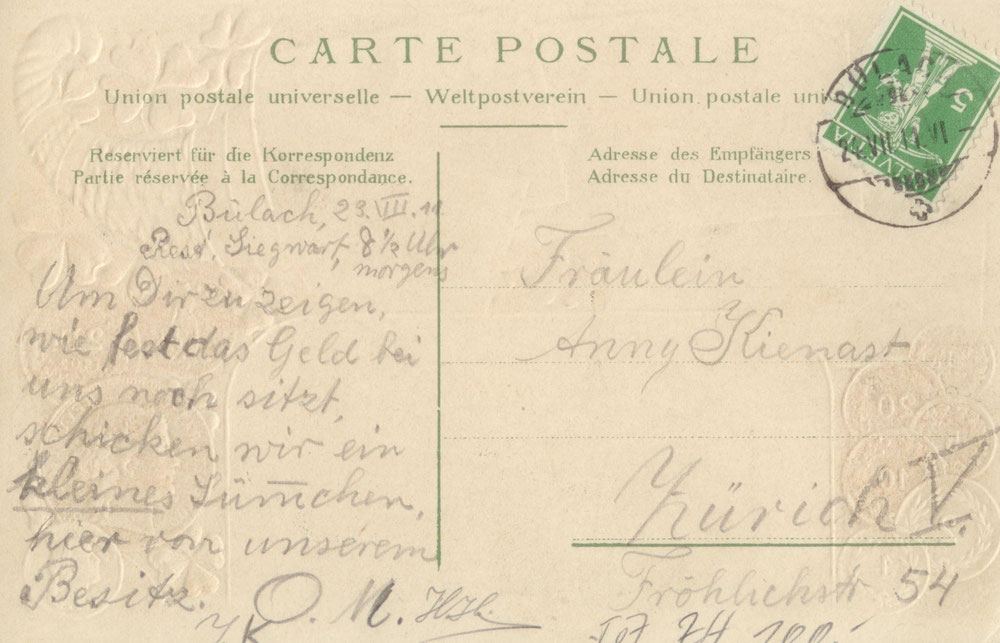 CARTE POSTALE
Union postale universelle — Weltpostverein — Union postale uni
Reserviert für die Korrespondenz
Partie réservée à la Correspondance.
Adresse des Empfängers
Adresse du Destinataire.
5
HELVETIA
BÜLACH
VIII.11.VI
Bülach, 29. VIII. 11
Rest. Siegwart, 8 1/2 Uhr
morgens
Um Dir zu zeigen,
wie fest das Geld bei
uns noch sitzt,
schicken wir ein
kleines Süm̅chen,
hier von unserem
Besitz.
O. M.
Fräulein
Anny Kienast
Zürich V.
Fröhlichstr. 54